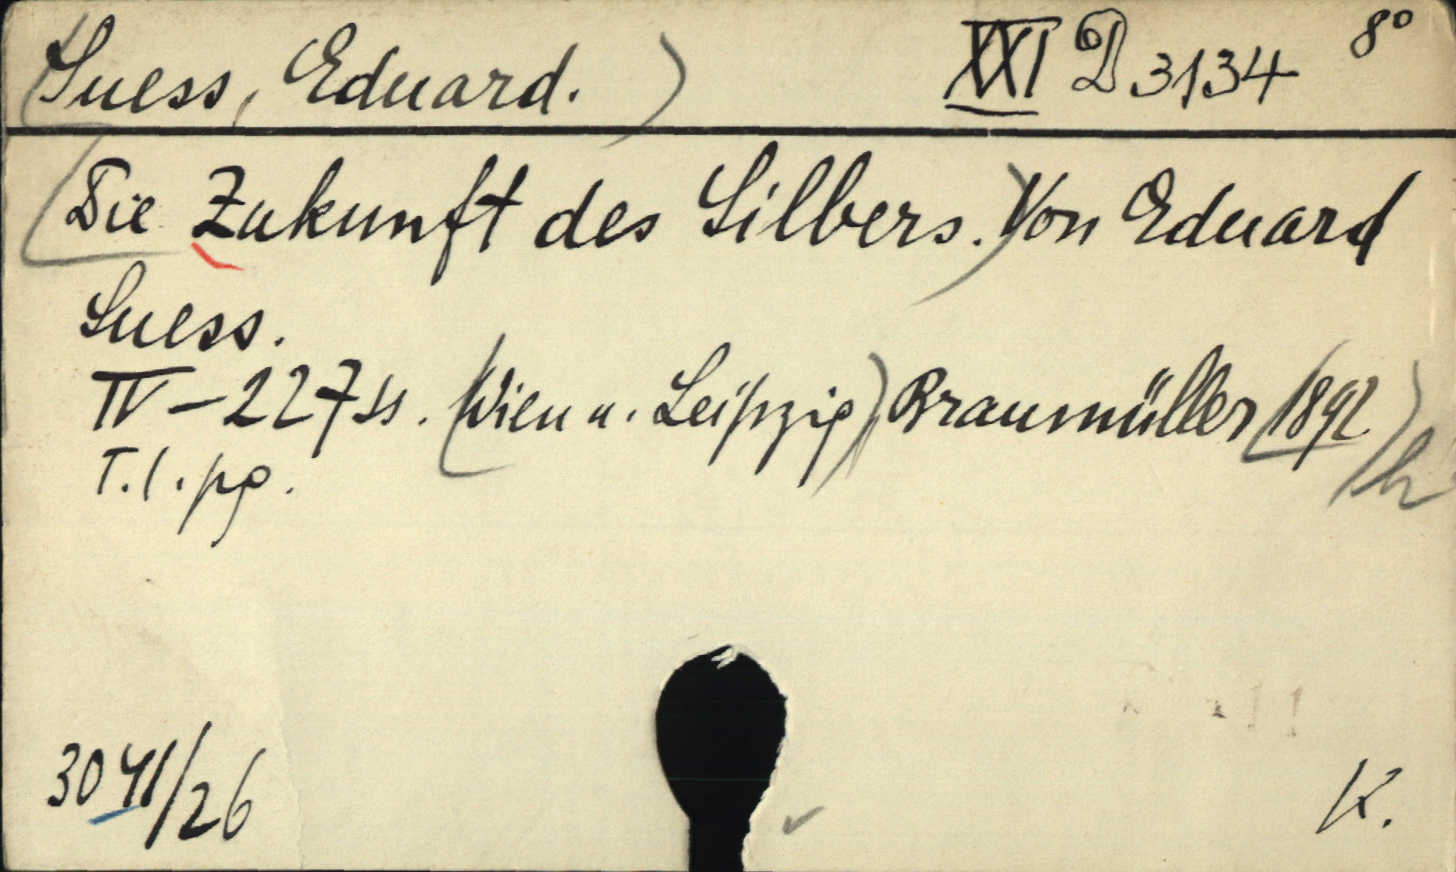 Suess, Eduard. XXI D 3134 8°
Die Zukunft des Silbers. Von Eduard
Suess.
IV - 227 ss. Wien u. Leipzig, Braumüller 1892
T. l. pg.
3041/26
K.